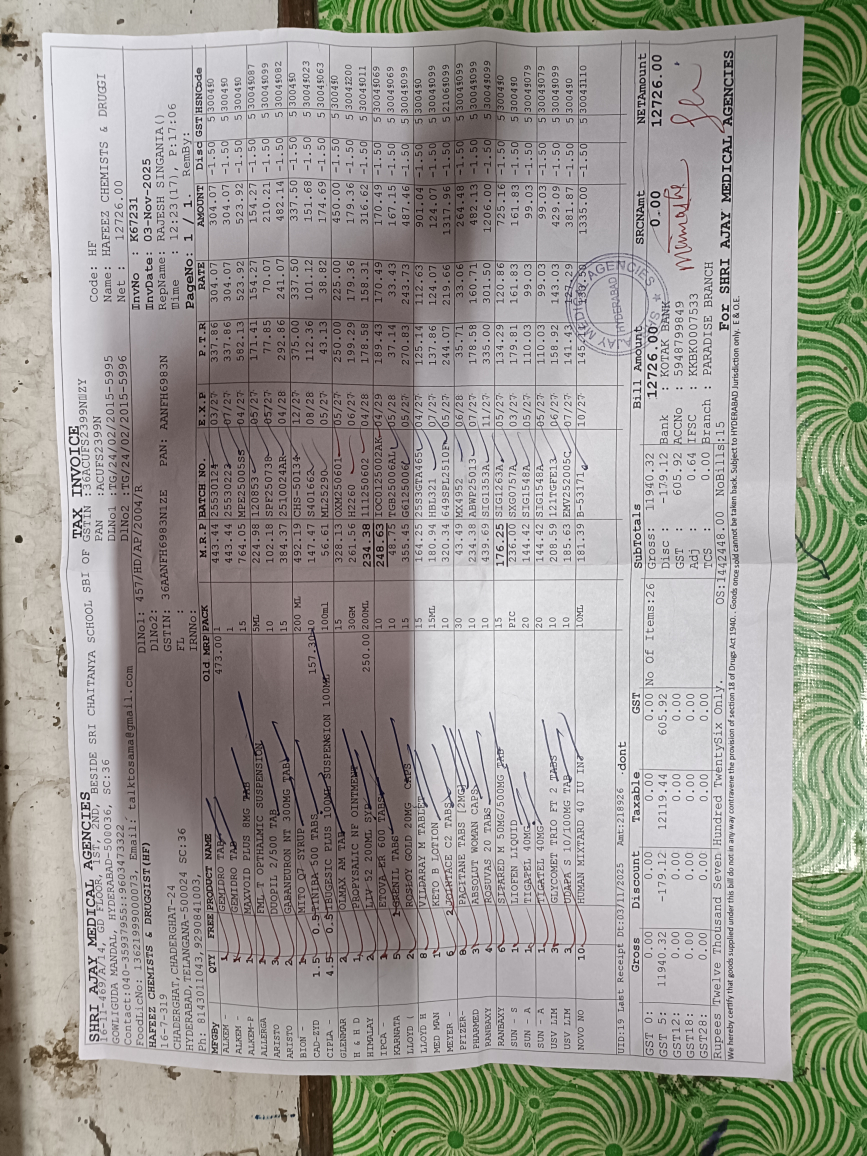 TAX INVOICE
SHRI AJAY MEDICAL AGENCIES
16-11-469/A/14, GD FLOOR, 1ST, 2ND, BESIDE SRI CHAITANYA SCHOOL SBI OF
GOWLIGUDA MANDAL, HYDERABAD-500036, SC:36
Contact:040-35937955::9603473322
FoodLicNo: 13621999000073, Email: talktosama@gmail.com
GSTIN :36ACUFS2399N
PAN :ACUFS2399N
DlNo1 :TG/24/02/2015-5995
DlNo2 :TG/24/02/2015-5996
Code: HF
Name: HAFEEZ CHEMISTS & DRUGGI
Net : 12726.00
HAFEEZ CHEMISTS & DRUGGIST(HF)
16-7-319
CHADERGHAT, CHADERGHAT-24
HYDERABAD, TELANGANA-500024 SC:36
Ph: 8143011043, 9290841003,
DlNo1: 457/HD/AP/2004/R
DlNo2:
GSTIN: 36AANFH6983N1ZE PAN: AANFH6983N
FL :
IRNNo:
InvNo : K67231
InvDate: 03-Nov-2025
RepName: RAJESH SINGANIA()
Time : 12:23(17), P:17:06
PageNo: 1 / 1. RemBy:
MFGBy QTY FREE PRODUCT NAME Old MRP PACK M.R.P BATCH NO. E.X.P P.T.R RATE AMOUNT Disc GST HSNCode
ALKEM - 1 GEMIDRO TAB 473.00 1 443.44 25530124 03/27 337.86 304.07 304.07 -1.50 5 300490
ALKEM - 1 GEMIDRO TAB 1 443.44 25530223 07/27 337.86 304.07 304.07 -1.50 5 300490
ALKEM-P 1 MAXVOID PLUS 8MG TAB 15 764.05 MPE25005SS 04/27 582.13 523.92 523.92 -1.50 5 30049087
ALLERGA 1 FML-T OPTHALMIC SUSPENSION 5ML 224.98 120853 05/27 171.41 154.27 154.27 -1.50 5 300490
ARISTO 3 DUOPIL 2/500 TAB 10 102.18 SPF250738 05/27 77.85 70.07 210.21 -1.50 5 30049099
ARISTO 2 GABANEURON NT 300MG TAB 15 384.37 2510024AR 04/28 292.86 241.07 482.14 -1.50 5 30049082
BION - 1 MITO Q7 SYRUP 200 ML 492.19 CHS-50134 12/27 375.00 337.50 337.50 -1.50 5 300490
CAD-ZYD 1.5 0.5 TINIBA 500 TABS 157.30 10 147.47 S401662 08/28 112.36 101.12 151.68 -1.50 5 30049023
CIPLA 4.5 0.5 IBUGESIC PLUS 100ML SUSPENSION 100ML 100ml 56.61 ML25290 05/28 43.13 38.82 174.69 -1.50 5 30049063
GLENMAR 2 OLMAX AM TAB 15 328.13 OXM250601 05/27 250.00 225.00 450.00 -1.50 5 300490
H & H D 1 PROPYSALIC NF OINTMENT 30GM 261.56 H2260 06/27 199.29 179.36 179.36 -1.50 5 30042200
HIMALAY 2 LIV-52 200ML SYP 250.00 200ML 234.38 04/28 178.58 158.31 316.62 -1.50 5 30049011
IPCA - 1 ETOVA ER 600 TABS 10 248.63 04/29 189.43 170.49 170.49 -1.50 5 30049069
KARNATA 5 SRENIL TABS 10 48.75 05/28 37.14 33.43 167.15 -1.50 5 30049069
LLOYD ( 2 ROSLOY GOLD 20MG CAPS 15 355.45 G6125006 05/27 270.83 243.73 487.46 -1.50 5 30049099
LLOYD H 8 VILDARAY M TABLET 15 164.25 04/27 125.14 112.63 901.04 -1.50 5 300490
MED MAN 1 KETO B LOTION 15ML 180.94 HBL321 07/27 137.86 124.07 124.07 -1.50 5 30049099
MEYER - 6 JOINTACE C2 TABS 10 320.34 649SPL2510F 05/27 244.07 219.66 1317.96 -1.50 5 21069099
PFIZER- 8 PACITANE TABS (2MG) 30 43.49 MX4952 06/28 35.71 33.06 264.48 -1.50 5 30049099
PHARMED 3 ABSOLUT WOMAN CAPS 10 234.38 ABWP25013 07/27 178.58 160.71 482.13 -1.50 5 30049099
RANBAXY 4 ROSUVAS 20 TABS 10 439.69 SIG1353A 11/27 335.00 301.50 1206.00 -1.50 5 30049099
RANBAXY 6 SIPARED M 50MG/500MG TAB 15 176.25 SIG1263A 05/27 134.29 120.86 725.16 -1.50 5 300490
SUN - S 1 LIOFEN LIQUID PIC 236.00 SXG0757A 03/27 179.81 161.83 161.83 -1.50 5 300490
SUN - A 1 TIGAPEL 40MG 20 144.42 SIG1548A 05/27 110.03 99.03 99.03 -1.50 5 30049079
SUN - A 1 TIGATEL 40MG 20 144.42 SIG1548A 05/27 110.03 99.03 99.03 -1.50 5 30049079
USV LIM 3 GLYCOMET TRIO FT 2 TABS 10 208.59 121TGFE13 06/27 158.92 143.03 429.09 -1.50 5 30049099
USV LIM 3 UDAPA S 10/100MG TAB 10 185.63 EMV252005C 07/27 141.43 127.29 381.87 -1.50 5 300490
NOVO NO 10 HUMAN MIXTARD 40 IU INJ 10ML 181.39 B-53171 10/27 1335.00 -1.50 5 30043110
UID:19 Last Receipt Dt:03/11/2025 Amt:218926 -dont
Gross Discount Taxable GST SubTotals Bill Amount SRCNAmt NETAmount
GST 0: 0.00 0.00 0.00 0.00 No Of Items:26 Gross: 11940.32 12726.00 0.00 12726.00
GST 5: 11940.32 -179.12 12119.44 605.92 Disc : -179.12 Bank : KOTAK BANK
GST12: 0.00 0.00 0.00 0.00 GST : 605.92 ACCNo : 5948799849
GST18: 0.00 0.00 0.00 0.00 Adj : 0.64 IFSC : KKBK0007533
GST28: 0.00 0.00 0.00 0.00 TCS : 0.00 Branch : PARADISE BRANCH
Rupees Twelve Thousand Seven Hundred TwentySix Only. OS:1442448.00 NoBills:15
For SHRI AJAY MEDICAL AGENCIES
We hereby certify that goods supplied under this bill do not in any way contravene the provision of section 18 of Drugs Act 1940. . Goods once sold cannot be taken back. Subject to HYDERABAD Jurisdiction only. E & O.E.
HYDERABAD